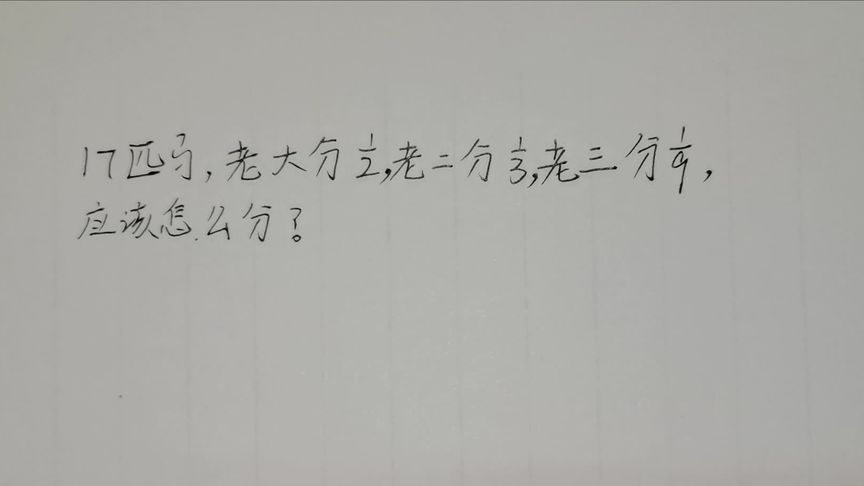 17匹马,老大分1/2,老二分1/3,老三分1/9,
应该怎么分?